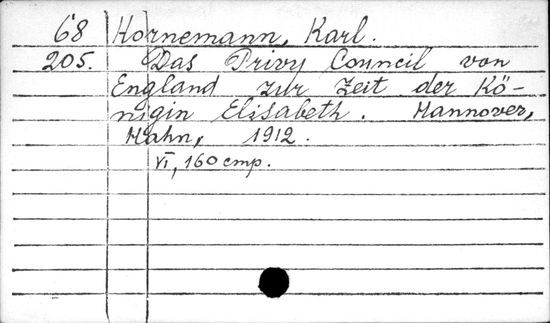 68 Hornemann, Karl.
205. Das Privy Council von
England zur Zeit der Kö-
nigin Elisabeth. Hannover,
Hahn, 1912.
VI, 160 cmp.